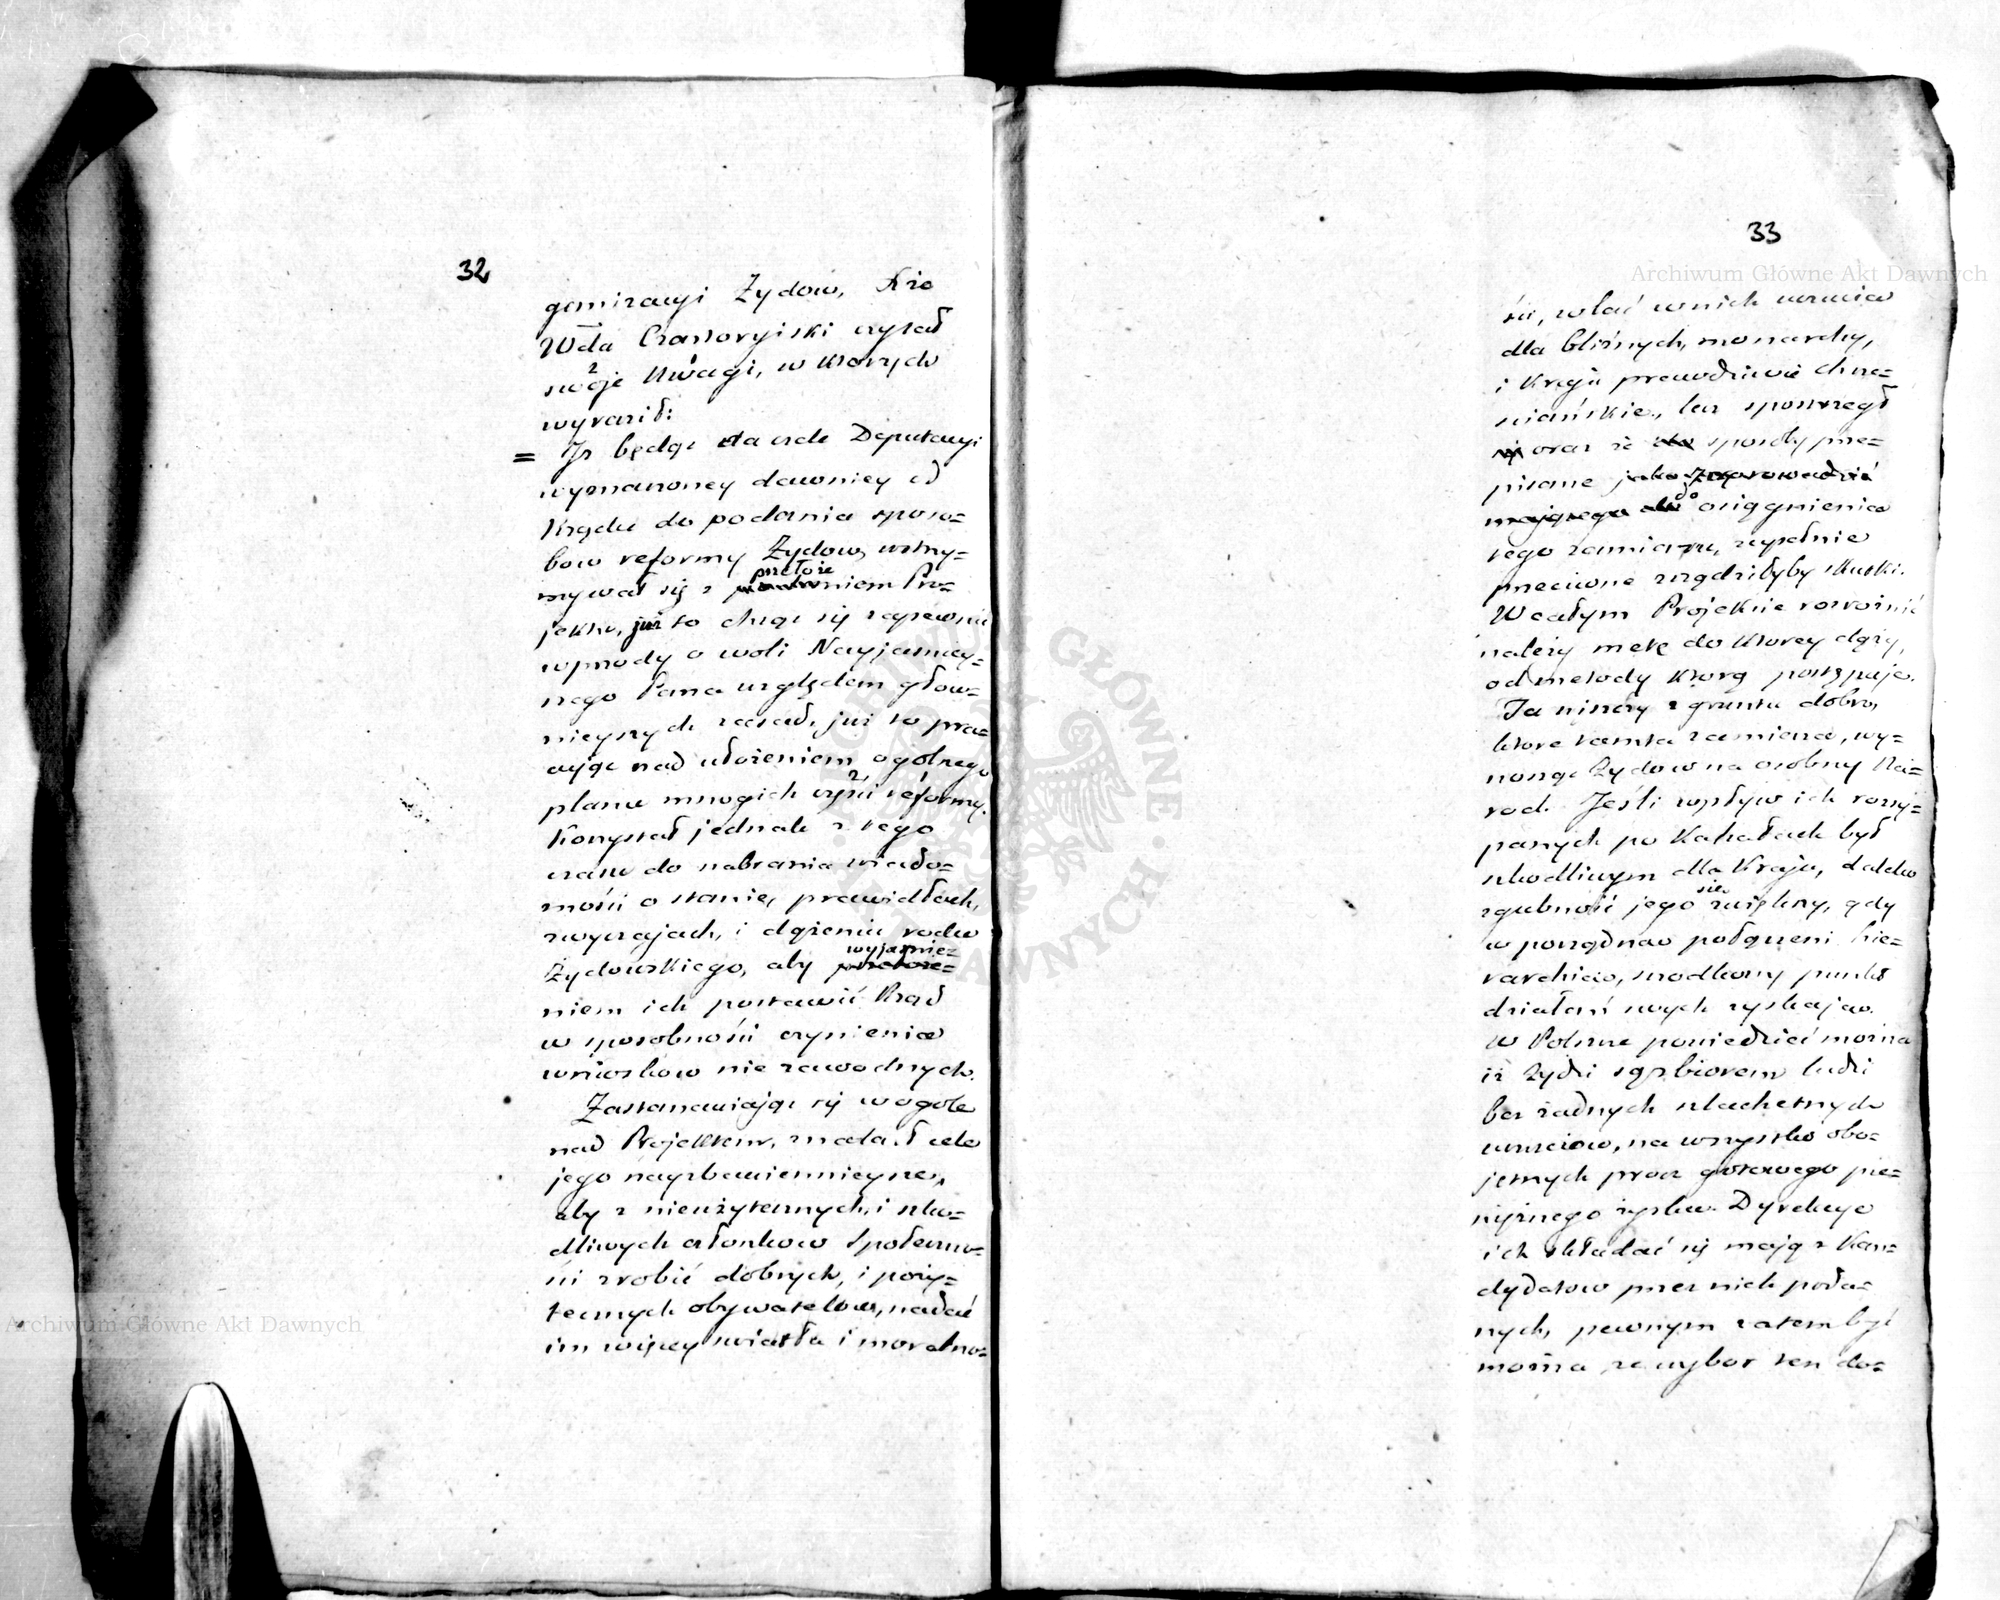 32
ganizacyi Żydow, Xże
Wda Czartoryiski czytał
swoje Uwagi, w ktorych
wyraził:
= Iż będąc na czele Deputacyi
wyznaczoney dawniey od
Rządu do podania sposo=
bow reformy Żydow, wstrzy=
mywał się z przełoże niem Pro=
jektu, już to chcąc się zapewnić
wprzody o woli Nayjaśniey=
szego Pana względem głow=
nieyszych zasad, już to pra=
cując nad ułożeniem ogólnego
planu mnogich części reformy.
Korzystał jednak z tego
czasu do nabrania wiado=
mości o stanie, prawidłach,
zwyczajach, i dążeniu rodu
Żydowskiego, aby wyjaśnie=
niem ich postawić Rząd
w sposobności czynienia
wniosków nie zawodnych.
Zastanawiając się w ogole
nad Projektem, znalazł cele
jego nayzbawiennieysze,
aby z nieużytecznych, i szko=
dliwych członkow społeczno=
ści zrobić dobrych, i poży=
tecznych obywatelow, nadać
im więcey swiatła i moralno=
33
ści, wlać w nich uczucia
dla bliźnych, monarchy,
i Kraju prawdziwie chrze=
sciańskie, lecz spostrzegł
oraz że sposoby prze=
pisane jako zaprowadzić
mające do osiągnienia
tego zamiaru, zupełnie
przeciwne zrządziłyby skutki.
W całym Projekcie rozrożnić
należy metę do ktorey dąży,
od metody ktorą postępuje.
Ta niszczy z gruntu dobro,
ktore tamta zamierza, wy=
nosząc Żydow na osobny Na=
rod. Jeśli wpływ ich rozsy=
panych po Kahałach był
szkodliwym dla Kraju, daleko
zgubność jego się zwiększy, gdy
w porządną połączeni hie=
rarchią, srodkowy punkt
działań swych zyskają.
W Polszcze powiedzieć można
iż Żydzi są zbiorem ludzi
bez żadnych szlachetnych
uczuciow, na wszystko obo=
jętnych procz gotowego pie=
niężnego zysku. Dyrekcye
ich składać się mają z Kan=
dydatow przez nich poda=
nych, pewnym zatem być
można że wybor ten do=
Archiwum Główne Akt Dawnych
Archiwum Główne Akt Dawnych